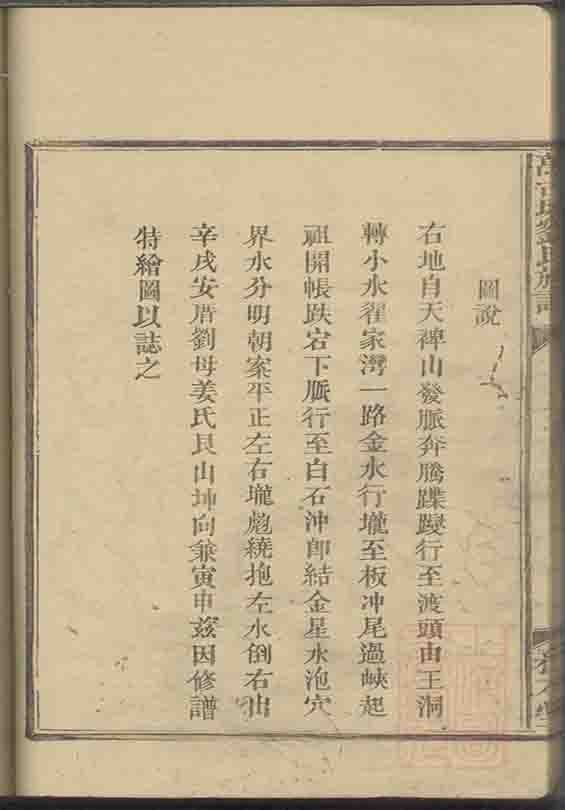 圖說
右地自天禆山發脈奔騰蹀踱行至渡頭由王洞
轉小水翟家灣一路金水行壠至板冲尾過峽起
祖開帳跌宕下脈行至白石沖即結金星水泡穴
界水分明朝案平正左右壠彪繞抱左水倒右出
辛戌安厝劉母姜氏艮山坤向兼寅申茲因修譜
特繪圖以誌之